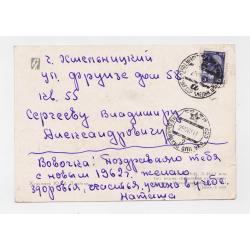 г. Хмельницкий
ул. фрунзе дом 58
кв. 55
Сергееву Владимиру
Александровичу
Вовочка! Поздравляю тебя
с новым 1962г. желаю
здоровья, счастья, успеха в учебе.
Наташа